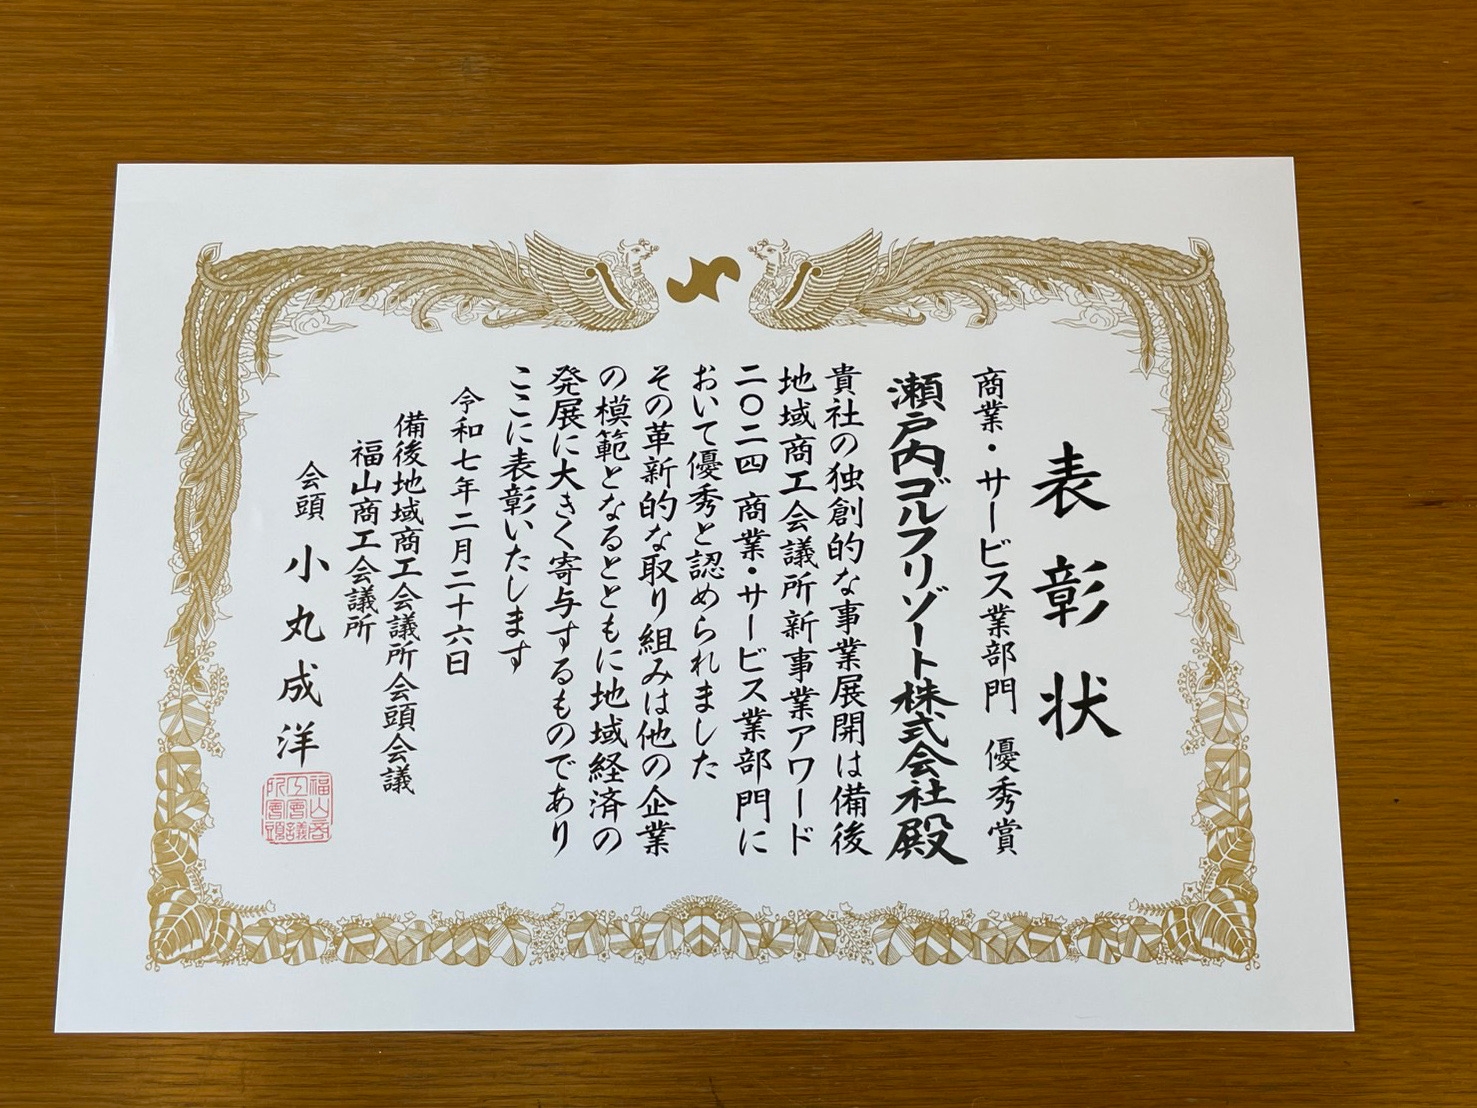 表彰状
商業・サービス業部門 優秀賞
瀬戸内ゴルフリゾート株式会社殿
貴社の独創的な事業展開は備後
地域商工会議所新事業アワード
二〇二四 商業・サービス業部門に
おいて優秀と認められました
その革新的な取り組みは他の企業
の模範となるとともに地域経済の
発展に大きく寄与するものであり
ここに表彰いたします
令和七年二月二十六日
備後地域商工会議所会頭会議
福山商工会議所
会頭 小丸成洋
福山商
工會議
所會頭